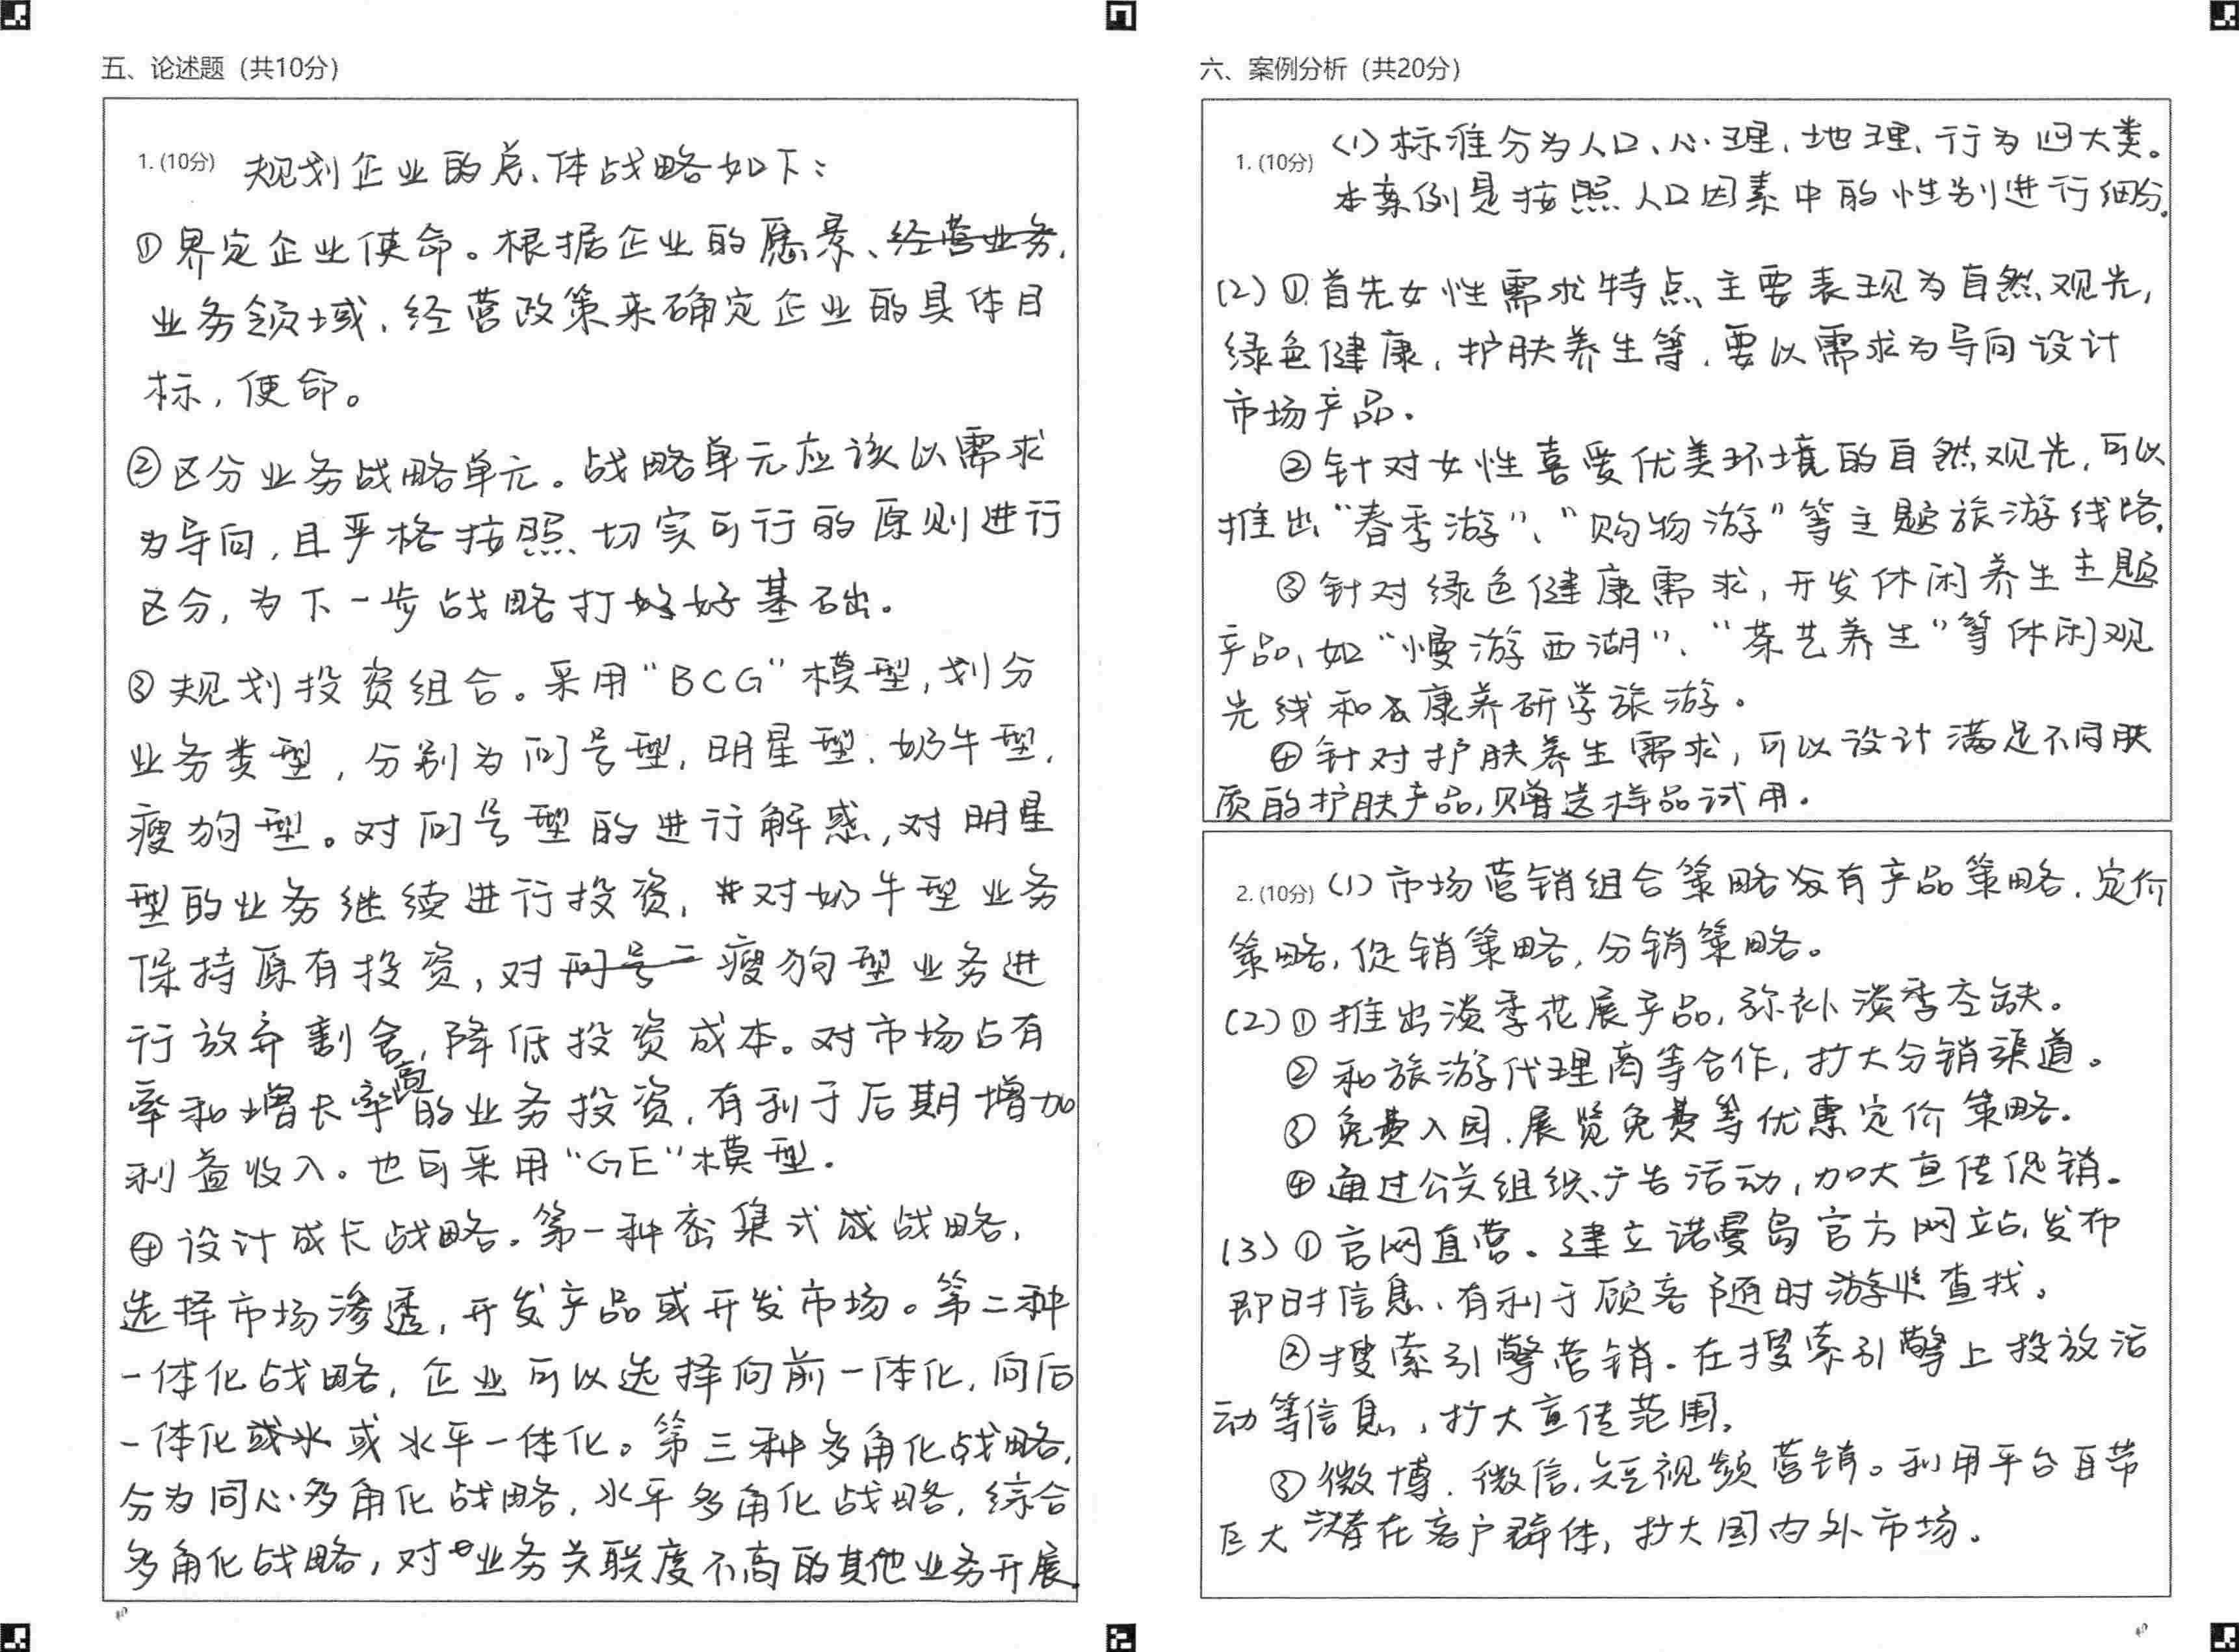 五、论述题（共10分）
1. (10分) 规划企业的总体战略如下：
①界定企业使命。根据企业的愿景、经营业务、
业务领域、经营政策来确定企业的具体目
标，使命。
②区分业务战略单元。战略单元应该以需求
为导向，且严格按照切实可行的原则进行
区分，为下一步战略打好好基础。
③规划投资组合。采用“BCG”模型，划分
业务类型，分别为问号型，明星型，奶牛型，
瘦狗型。对问号型的进行解惑，对明星
型的业务继续进行投资，对奶牛型业务
保持原有投资，对问号二瘦狗型业务进
行放弃割舍，降低投资成本。对市场占有
率和增长率高的业务投资，有利于后期增加
利益收入。也可采用“GE”模型.
④设计成长战略。第一种密集式成战略，
选择市场渗透，开发产品或开发市场。第二种
一体化战略，企业可以选择向前一体化，向后
一体化或水或水平一体化。第三种多角化战略，
分为同心多角化战略，水平多角化战略，综合
多角化战略，对业务关联度不高的其他业务开展。
六、案例分析（共20分）
1. (10分) (1)标准分为人口、心理、地理、行为四大类。
本案例是按照人口因素中的性别进行细分。
(2)①首先女性需求特点主要表现为自然观光，
绿色健康，护肤养生等，要以需求为导向设计
市场产品.
②针对女性喜爱优美环境的自然观光，可以
推出“春季游”、“购物游”等主题旅游线路.
③针对绿色健康需求，开发休闲养生主题
产品，如“慢游西湖”、“茶艺养生”等休闲观
光线和康养研学旅游。
④针对护肤养生需求，可以设计满足不同肤
质的护肤产品，赠送样品试用.
2. (10分) (1)市场营销组合策略有产品策略，定价
策略，促销策略，分销策略。
(2)①推出淡季花展产品，弥补淡季空缺。
②和旅游代理商等合作，扩大分销渠道。
③免费入园，展览免费等优惠定价策略.
④通过公关组织、广告活动，加大宣传促销.
(3)①官网直营。建立诺曼岛官方网站，发布
即时信息，有利于顾客随时游览查找。
②搜索引擎营销.在搜索引擎上投放活
动等信息，扩大宣传范围。
③微博，微信，短视频营销。利用平台自带
巨大潜在客户群体，扩大国内外市场.